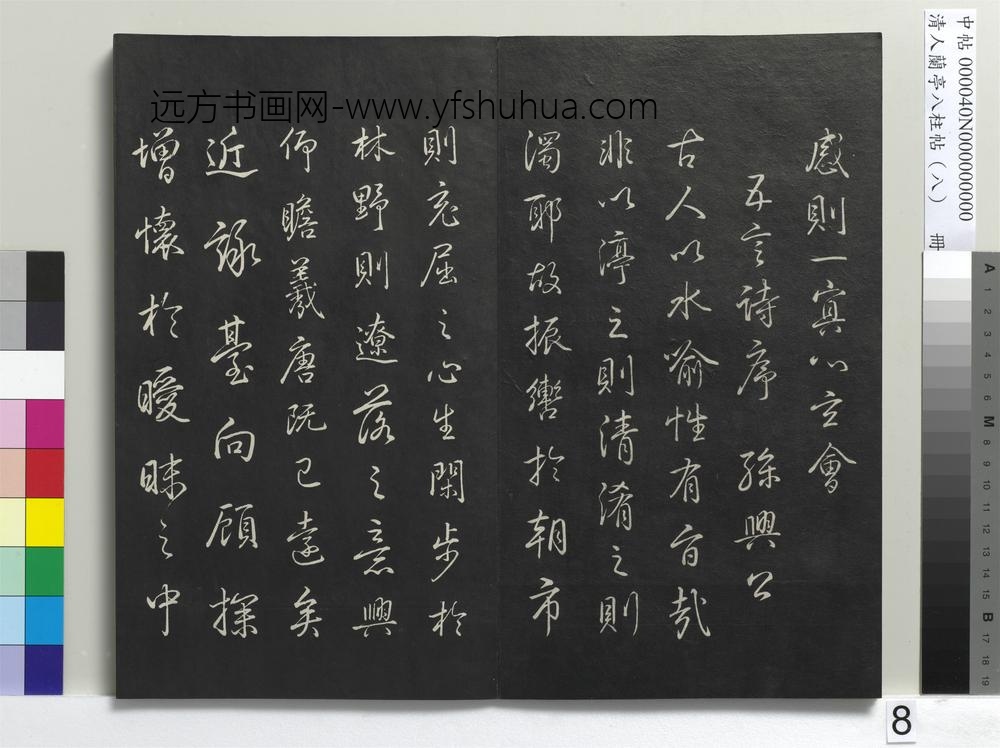 远方书画网-www.yfshuhua.com
中帖 000040N000000000
清人蘭亭八柱帖（八） 冊
感則一冥心玄會
五言詩序 孫興公
古人以水喻性有旨哉
非以渟之則清淆之則
濁耶故振轡於朝市
則充屈之心生閑步於
林野則遼落之意興
仰瞻羲唐既已遠矣
近詠臺向顧探
增懷於曖昧之中
A 1 2 3 4 5 6 M 8 9 10 11 12 13 14 15 B 17 18 19
8